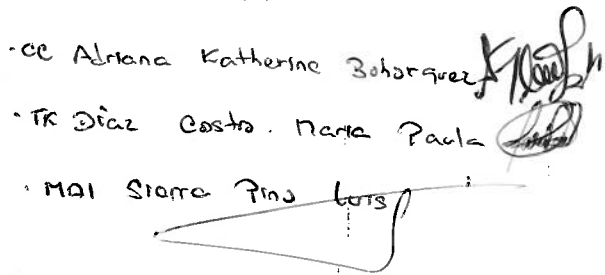 · CC Adriana Katherine Bohorquez
· TK Díaz Costo. Maria Paula
· MAI Sierra Pino Luis